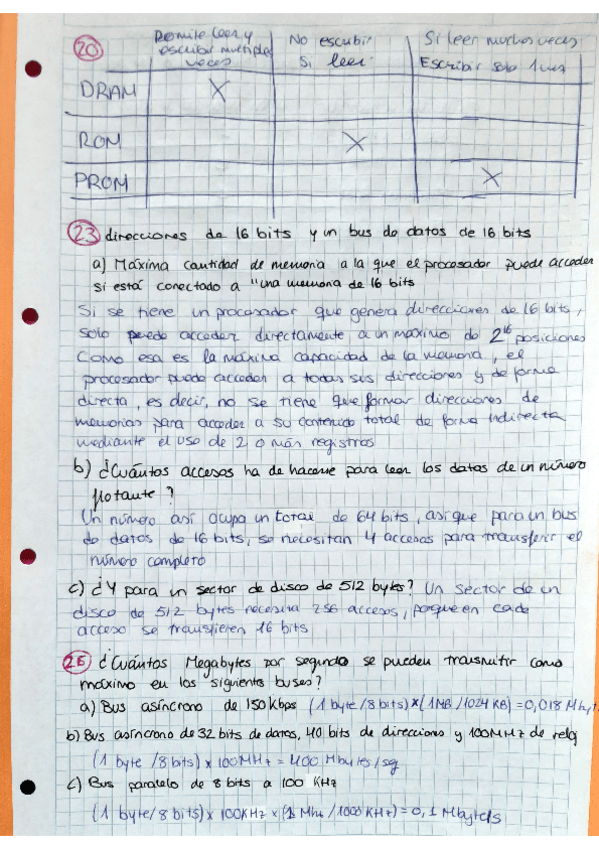 20
Permite leer y escribir multiples veces
No escribir Si leer
Si leer muchas veces Escribir solo 1 vez
DRAM X
ROM X
PROM X
23 direcciones de 16 bits y un bus de datos de 16 bits
a) Máxima cantidad de memoria a la que el procesador puede acceder
si está conectado a "una memoria de 16 bits
Si se tiene un procesador que genera direcciones de 16 bits,
solo puede acceder directamente a un maximo de 2^16 posiciones
Como esa es la máxima capacidad de la memoria, el
procesador puede acceder a todas sus direcciones y de forma
directa, es decir, no se tiene que formar direcciones de
memorias para acceder a su contenido total de forma indirecta
mediante el uso de 2 o más registros
b) ¿Cuántos accesos ha de hacerse para leer los datos de un número
flotante?
Un número así ocupa un total de 64 bits, así que para un bus
de datos de 16 bits, se necesitan 4 accesos para transferir el
número completo
c) ¿Y para un sector de disco de 512 bytes? Un sector de un
disco de 512 bytes necesita 256 accesos, porque en cada
acceso se transfieren 16 bits
26 ¿Cuántos Megabytes por segundo se pueden transmitir como
máximo en los siguientes buses?
a) Bus asíncrono de 150Kbps (1 byte/8 bits)x(1MB/1024 KB)=0,018 Mbyt
b) Bus asíncrono de 32 bits de datos, 40 bits de direcciones y 100MHz de reloj
(1 byte/8 bits)x 100MHz = 400 Mbytes/sg
c) Bus paralelo de 8 bits a 100 KHz
(1 byte/8 bits)x 100KHz x (1 Mhz/1000 KHz)=0,1 Mbyte/s